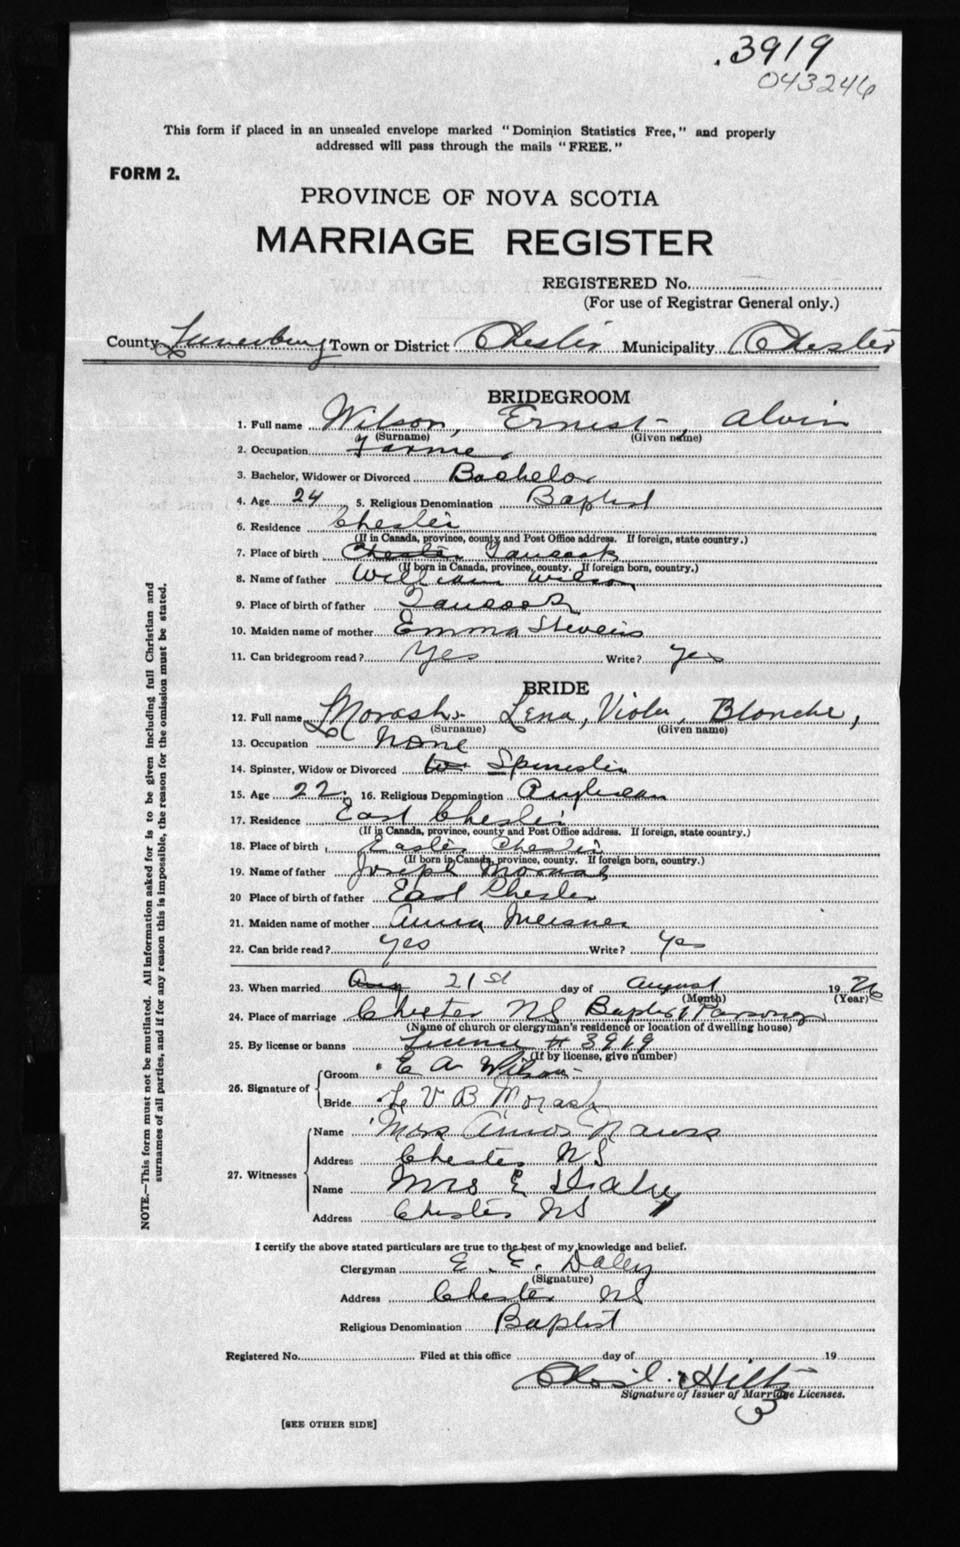 .3919
043246
This form if placed in an unsealed envelope marked "Dominion Statistics Free," and properly
addressed will pass through the mails "FREE."
FORM 2.
PROVINCE OF NOVA SCOTIA
MARRIAGE REGISTER
REGISTERED No.
(For use of Registrar General only.)
County Lunenburg Town or District Chester Municipality Chester
BRIDEGROOM
1. Full name Wilson, Ernest Alvin
(Surname) (Given name)
2. Occupation Farmer
3. Bachelor, Widower or Divorced Bachelor
4. Age 24 5. Religious Denomination Baptist
6. Residence Chester
(If in Canada, province, county and Post Office address. If foreign, state country.)
7. Place of birth Chester Tancook
(If born in Canada, province, county. If foreign born, country.)
8. Name of father William Wilson
9. Place of birth of father Tancook
10. Maiden name of mother Emma Stevens
11. Can bridegroom read? Yes Write? Yes
BRIDE
12. Full name Morash, Lena, Viola, Blanche,
(Surname) (Given name)
13. Occupation None
14. Spinster, Widow or Divorced Spinster
15. Age 22. 16. Religious Denomination Anglican
17. Residence East Chester
(If in Canada, province, county and Post Office address. If foreign, state country.)
18. Place of birth East Chester
(If born in Canada, province, county. If foreign born, country.)
19. Name of father Joseph Morash
20 Place of birth of father East Chester
21. Maiden name of mother Anna Meisner
22. Can bride read? Yes Write? Yes
23. When married Aug 21st day of August 1926
(Month) (Year)
24. Place of marriage Chester NS Baptist Parsonage
(Name of church or clergyman's residence or location of dwelling house)
25. By license or banns License # 3919
(If by license, give number)
26. Signature of Groom E A Wilson
Bride L V B Morash
27. Witnesses Name Mrs Amos Nauss
Address Chester NS
Name Mrs E Daley
Address Chester NS
I certify the above stated particulars are true to the best of my knowledge and belief.
Clergyman E. E. Daley
(Signature)
Address Chester NS
Religious Denomination Baptist
Registered No. Filed at this office day of 19
Hiltz
Signature of Issuer of Marriage Licenses.
3
[SEE OTHER SIDE]
NOTE.—This form must not be mutilated. All information asked for is to be given including full Christian and
surnames of all parties, and if for any reason this is impossible, the reason for the omission must be stated.